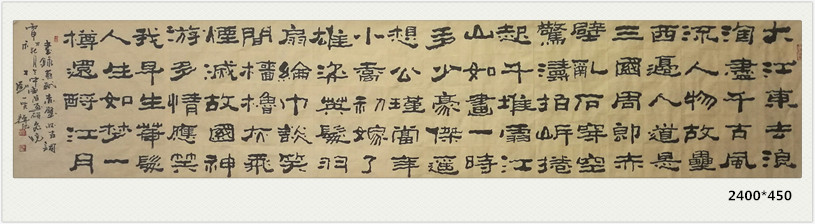 大江東去浪
淘盡千古風
流人物故壘
西邊人道是
三國周郎赤
壁亂石穿空
驚濤拍岸捲
起千堆雪江
山如畫一時
多少豪傑遥
想公瑾當年
小喬初嫁了
雄姿英髮羽
扇綸巾談笑
間檣櫓灰飛
煙滅故國神
游多情應笑
我早生華髮
人生如夢一
樽還酹江月
2400*450